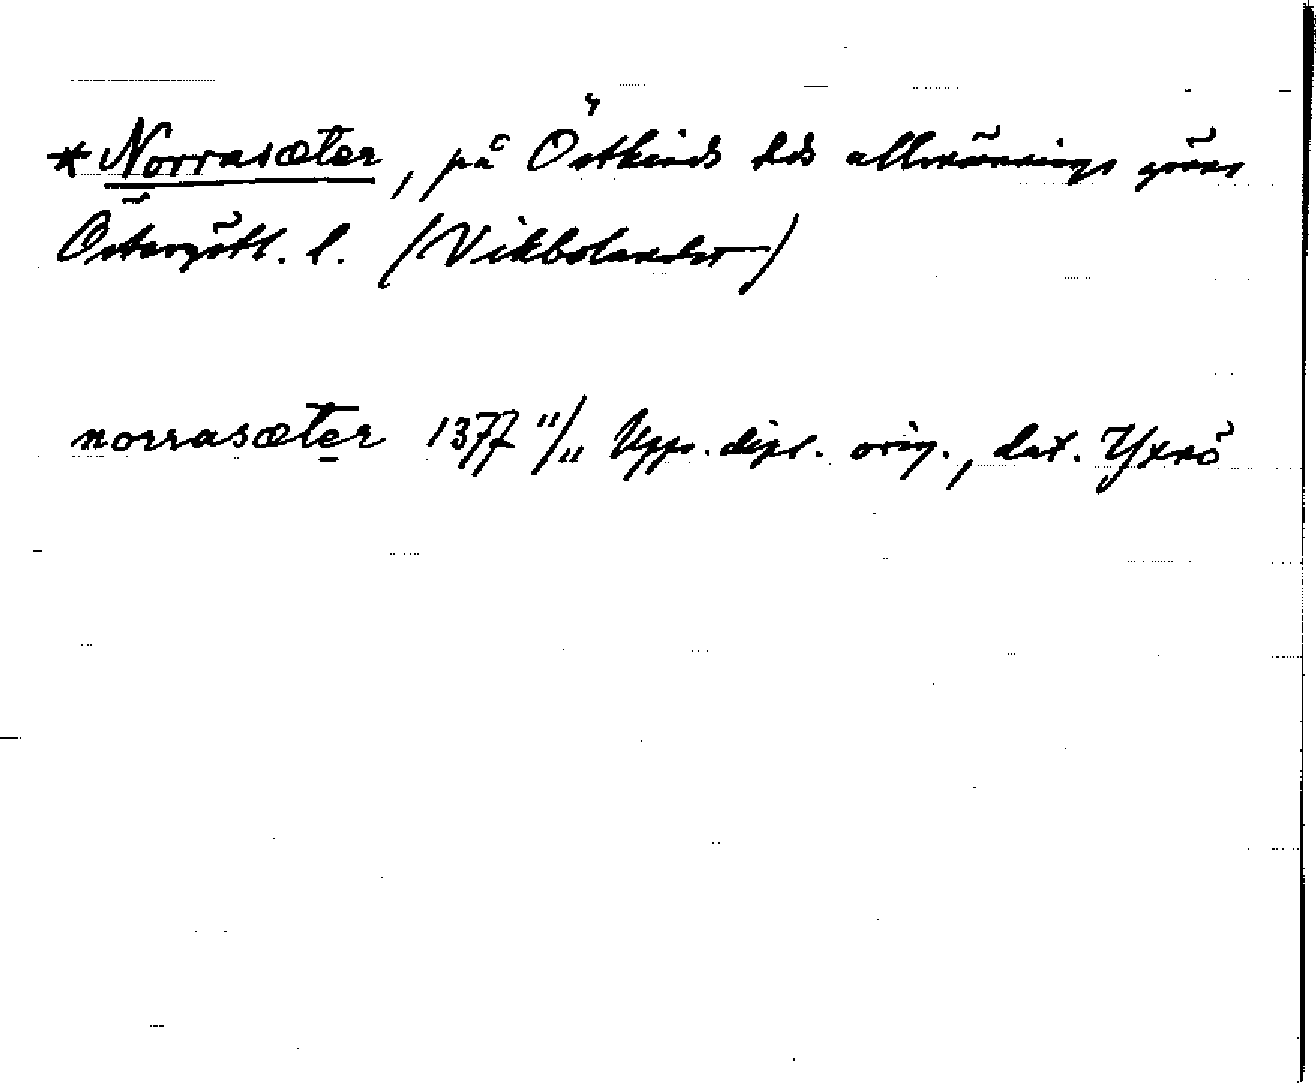 *Norrasæter, på Östkinds hds allmännings görs
Östergötl. l. (Vikbolandet)
norrasæter 1377 11/11 Upps. dipl. orig., dat. Yxnö